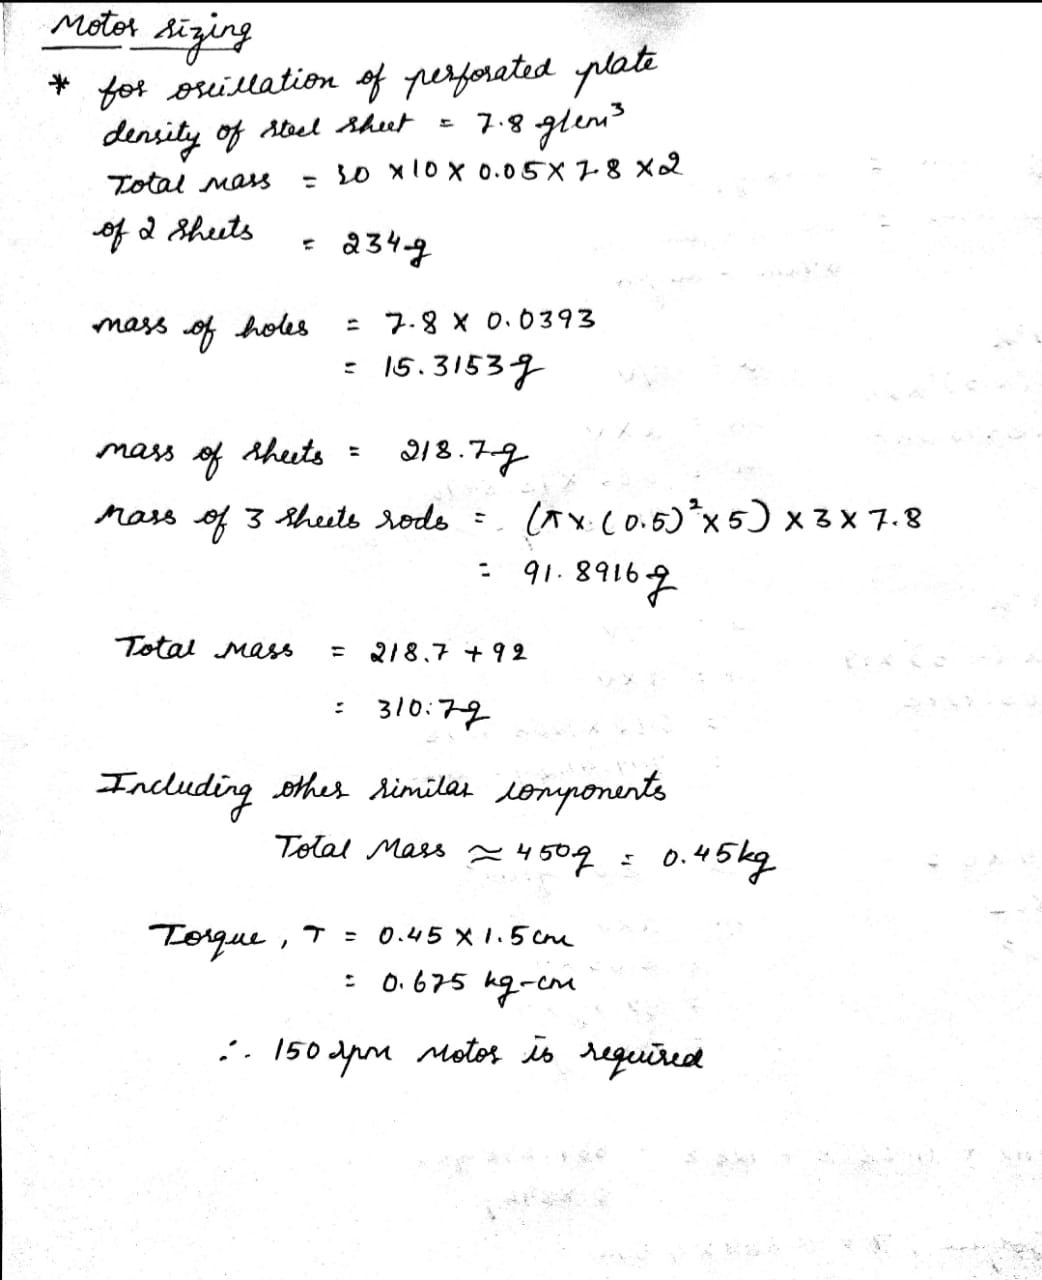 Motor sizing
* for oscillation of perforated plate
density of steel sheet = 7.8 g/cm³
Total mass = 30 × 10 × 0.05 × 7.8 × 2
of 2 sheets = 234g
mass of holes = 7.8 × 0.0393
= 15.3153g
mass of sheets = 218.7g
Mass of 3 sheets rods = (π × (0.5)² × 5) × 3 × 7.8
= 91.8916g
Total mass = 218.7 + 92
= 310.7g
Including other similar components
Total Mass ≈ 450g = 0.45kg
Torque, T = 0.45 × 1.5cm
= 0.675 kg-cm
∴ 150 rpm Motor is required